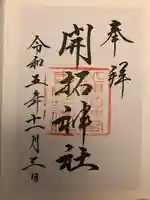 奉拝
開拓神社
令和五年十一月三日